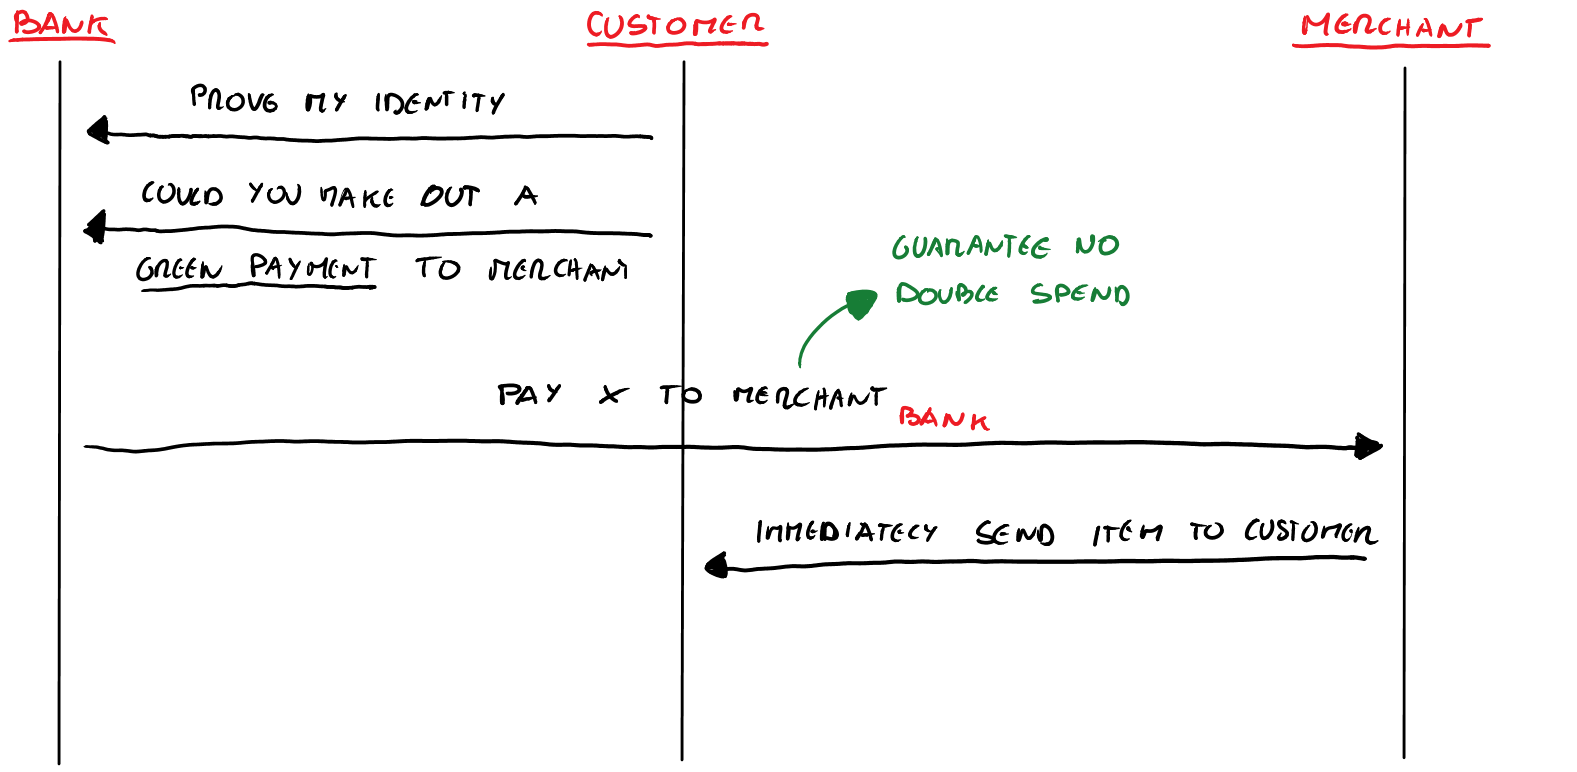 BANK
CUSTOMER
MERCHANT
PROVE MY IDENTITY
COULD YOU MAKE OUT A
GREEN PAYMENT TO MERCHANT
GUARANTEE NO
DOUBLE SPEND
PAY X TO MERCHANT
BANK
IMMEDIATELY SEND ITEM TO CUSTOMER